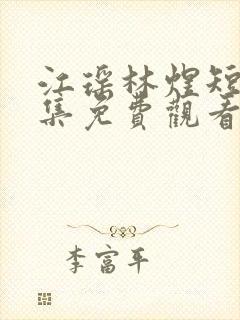 江瑶林煌短
集免費觀看
李富平